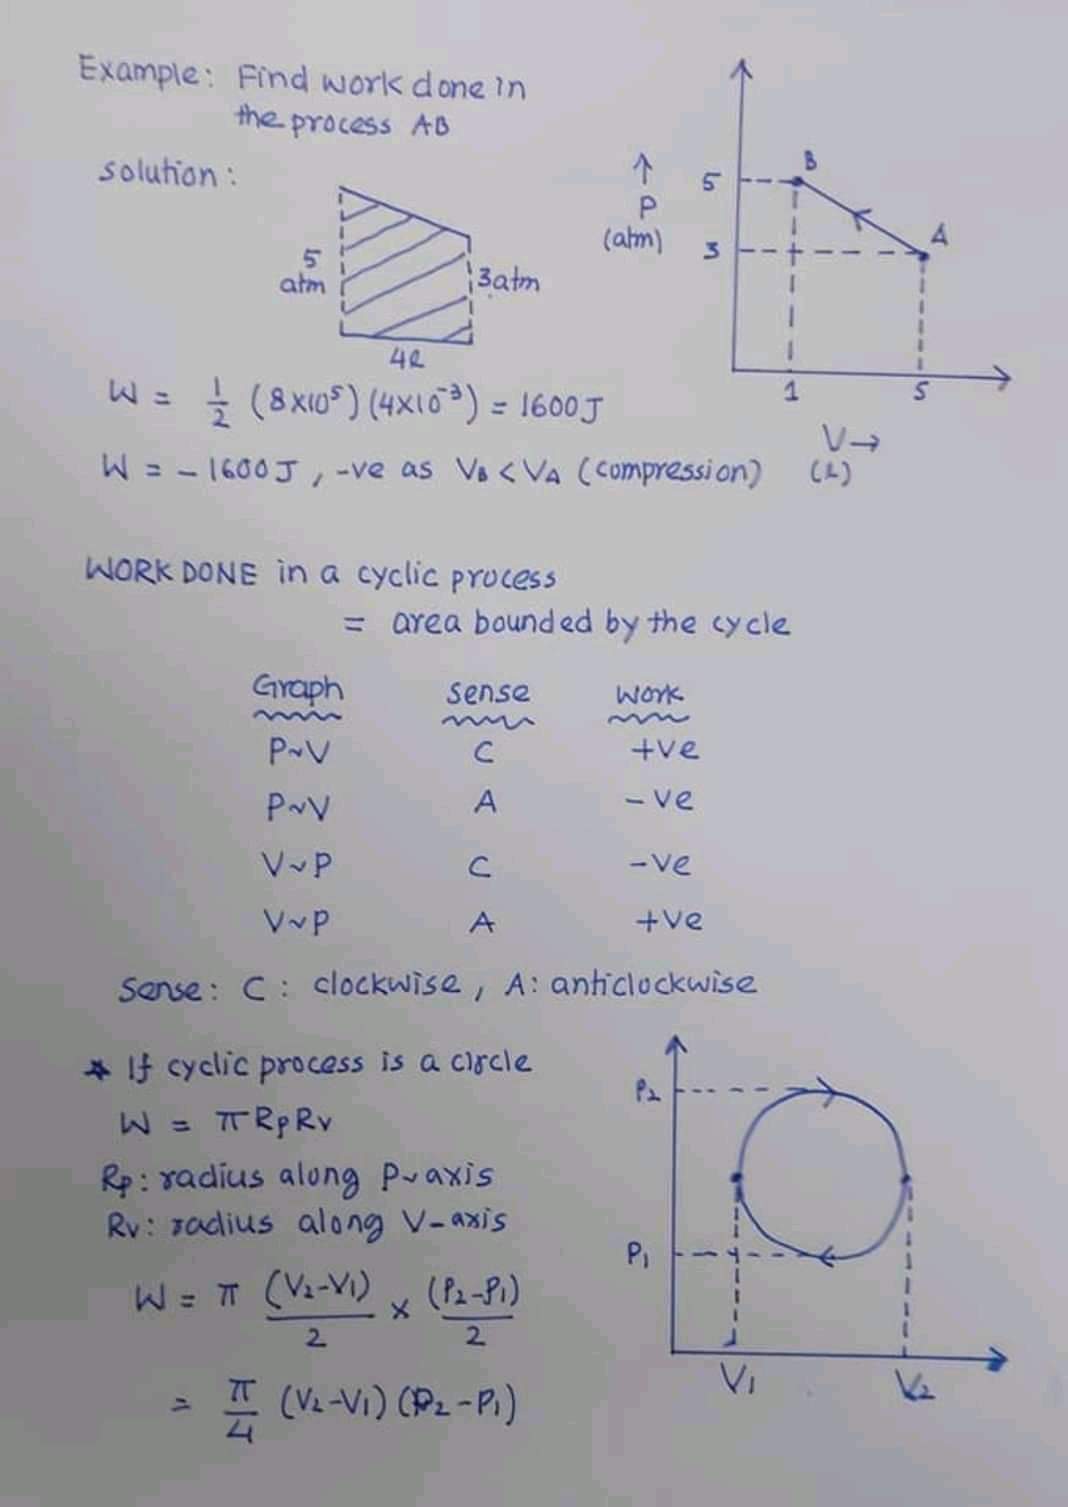 Example: Find work done in
the process AB
solution:
5
atm
3atm
4l
B
5
↑
P
(atm)
3
A
1
5
V→
(l)
W = 1/2 (8×10⁵)(4×10⁻³) = 1600J
W = -1600J, -ve as VB < VA (compression)
WORK DONE in a cyclic process
= area bounded by the cycle
Graph sense work
P~V C +ve
P~V A -ve
V~P C -ve
V~P A +ve
Sense: C: clockwise, A: anticlockwise
* If cyclic process is a circle
W = πRpRv
Rp: radius along P~axis
Rv: radius along V-axis
W = π (V₂-V₁)/2 × (P₂-P₁)/2
= π/4 (V₂-V₁)(P₂-P₁)
P₂
P₁
V₁
V₂